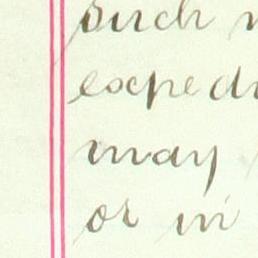 such
expedi
may
or in